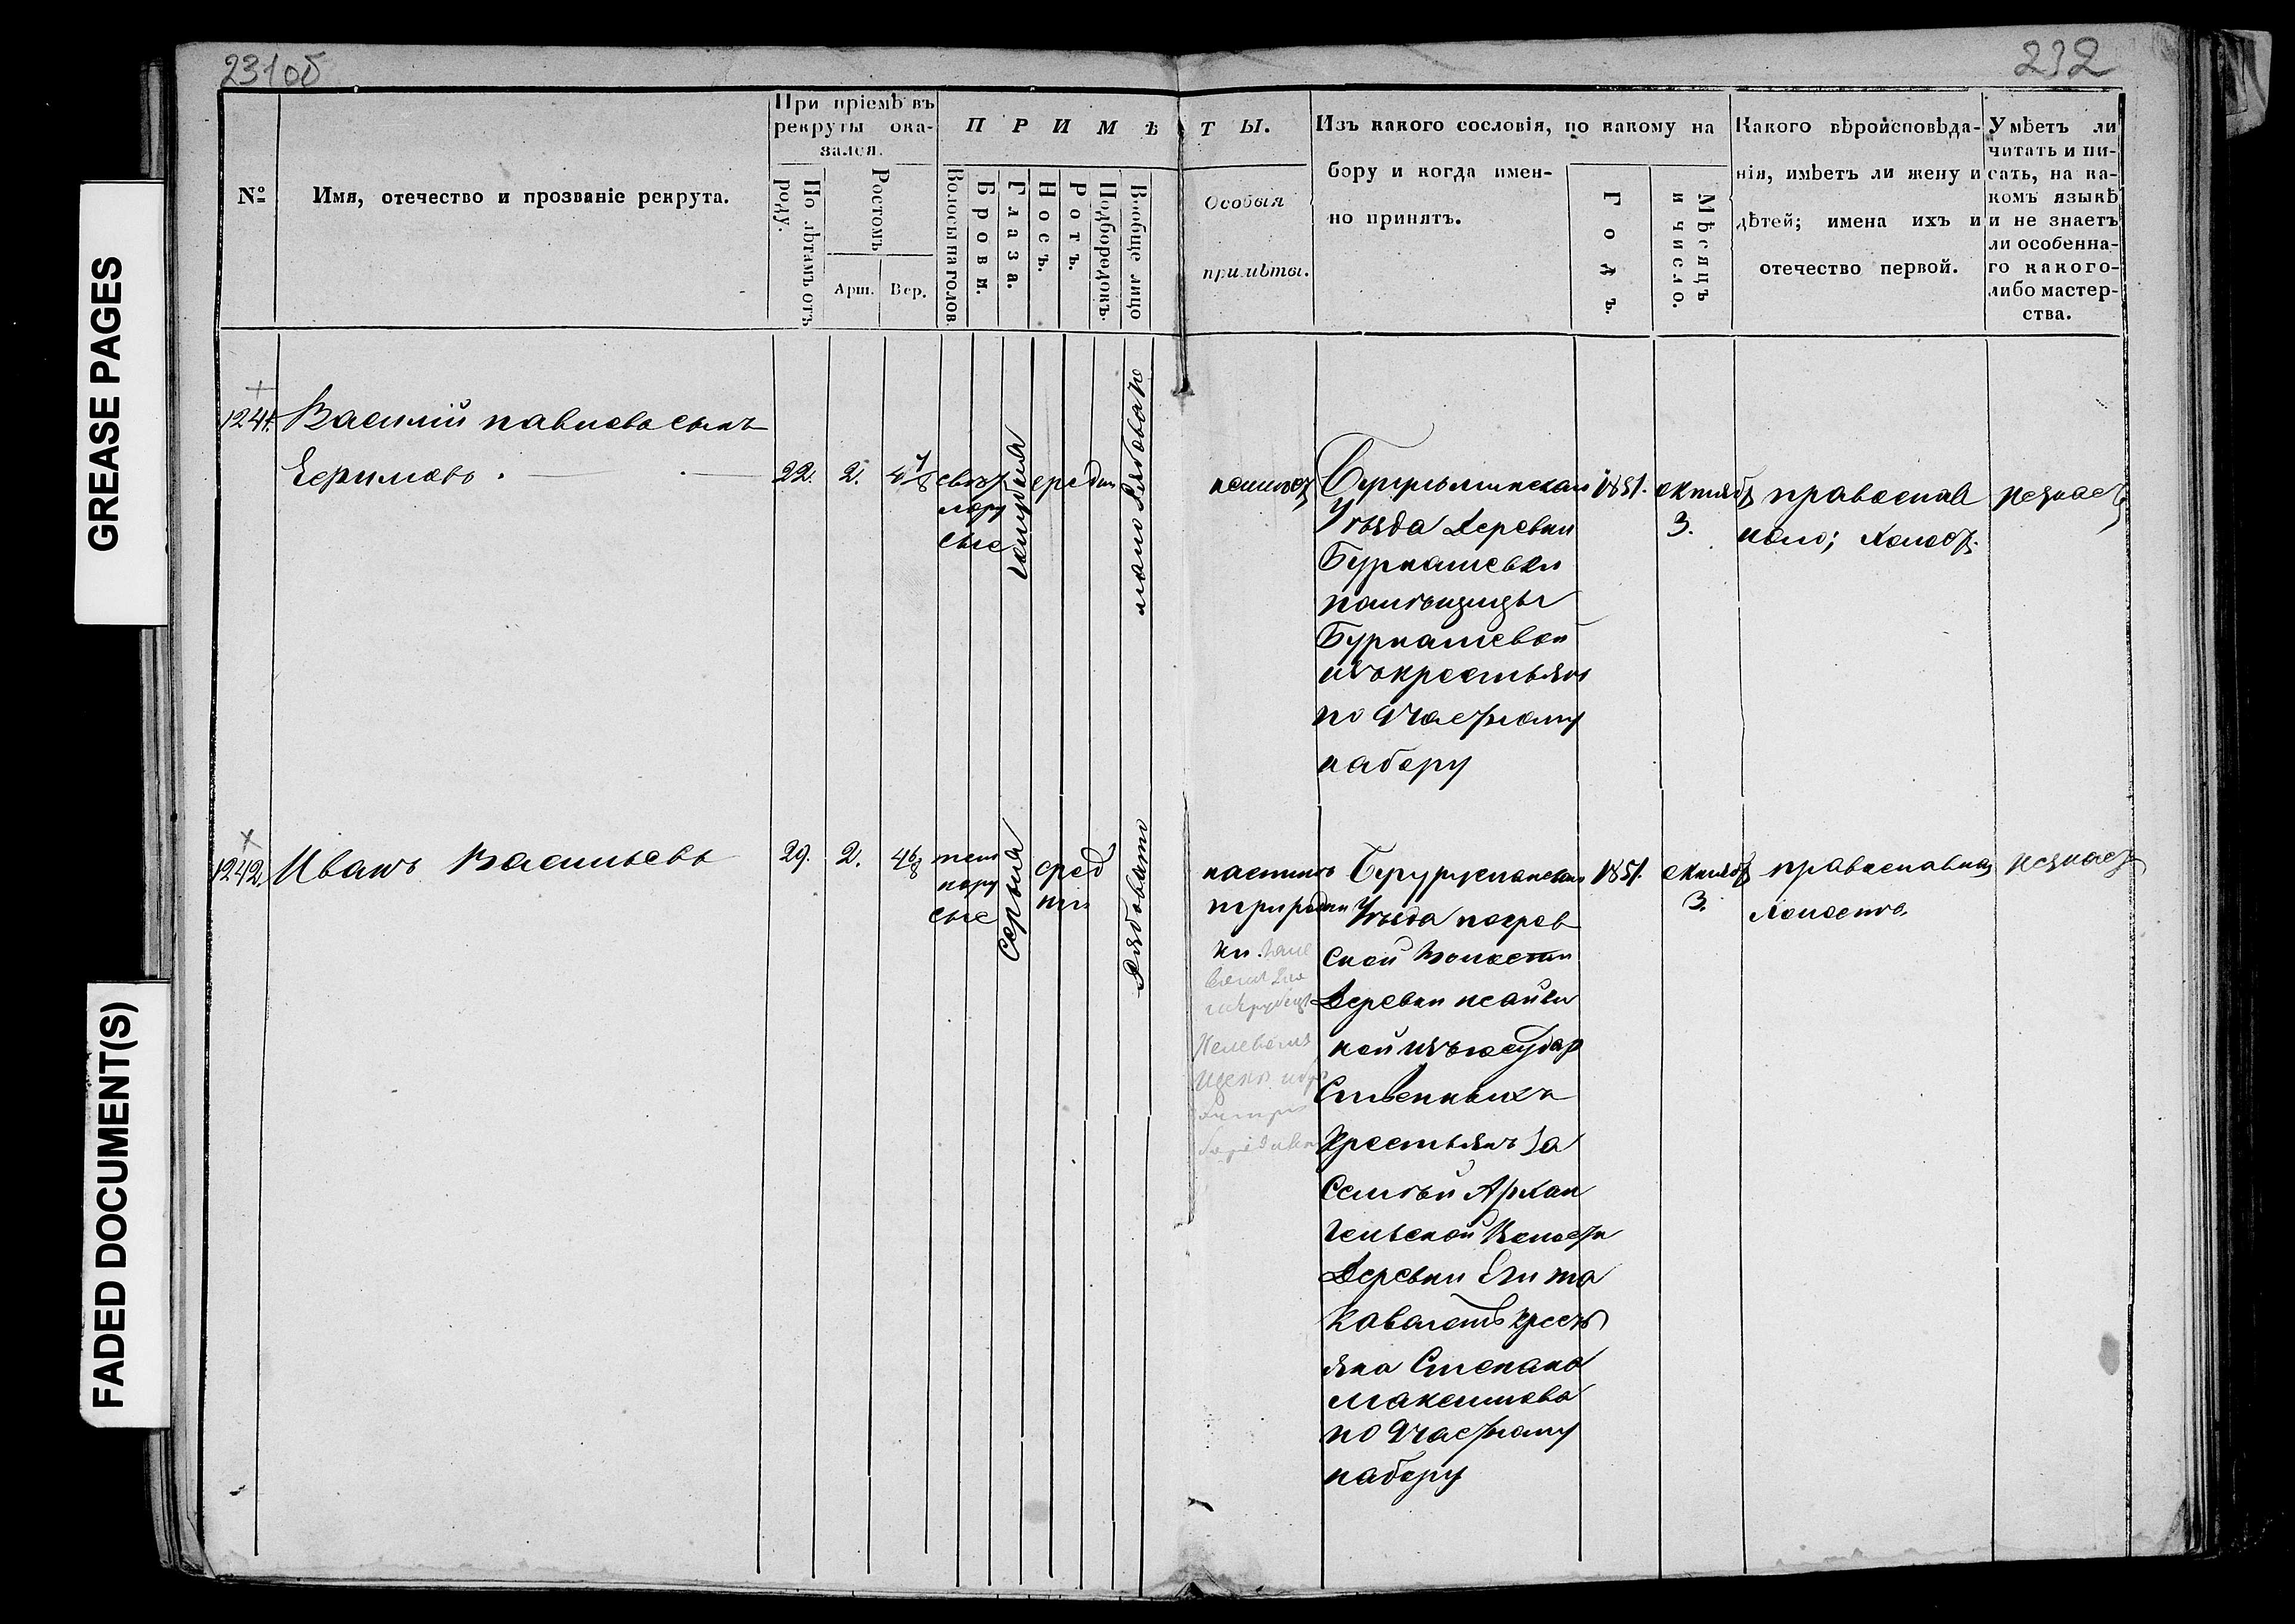 GREASE PAGES
FADED DOCUMENT(S)
231об
232
№
Имя, отечество и прозваніе рекрута.
При пріемѣ въ
рекруты ока-
зался.
По лѣтамъ отъ
роду.
Ростомъ
Арш.
Вер.
ПРИМѢТЫ.
Волосы на голов.
Брови.
Глаза.
Носъ.
Ротъ.
Подбородокъ.
Вообще лицо
Особыя
примѣты.
Изъ какого сословія, по какому на
бору и когда имен-
но принятъ.
Годъ.
Мѣсяцъ
и число.
Какого вѣроисповѣда-
нія, имѣетъ ли жену и
дѣтей; имена ихъ и
отечество первой.
Умѣетъ ли
читать и пи-
сать, на ка-
комъ языкѣ
и не знаетъ
ли особенна-
го какого-
либо мастер-
ства.
1241.
Василій павлова сынъ
22.
2.
4 7/8
свѣт
лору
сые
голубыя
средн
неимѣет
Уѣзда Деревни
Бурнашевки
помѣщицы
Бурнашевой
изъ крестьянъ
по 9 частному
набору
1851.
октяб
3.
православ
ного; холост.
незнает
1242.
Иванъ Васильевъ
29.
2.
4 6/8
тем
нору
сые
Серыя
сред
ніи
Рябовато
Уѣзда покров
ской волости
Деревни
ной изъ государ
ственныхъ
крестьянъ за
Семьи Архан
гельской Волости
Деревни
крест
яна Степана
Максимова
по 9 частному
набору
1851.
октяб
3.
православнаг
холостъ.
незнает